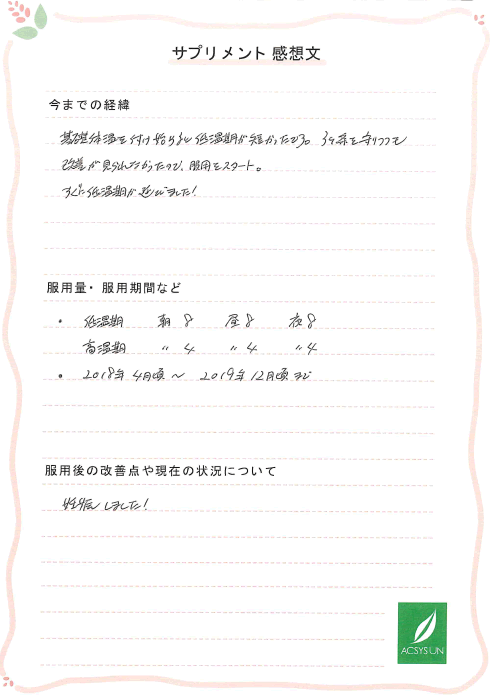 サプリメント 感想文
今までの経緯
基礎体温を付け始めると低温期が短かったです。
改善が見られなかったので、服用をスタート。
すぐに低温期が延びました!
服用量・服用期間など
・ 低温期 朝 8 昼 8 夜 8
高温期 〃 4 〃 4 〃 4
・ 2018年 4月頃 〜 2019年 12月頃 まで
服用後の改善点や現在の状況について
妊娠しました!
ACSYSUN